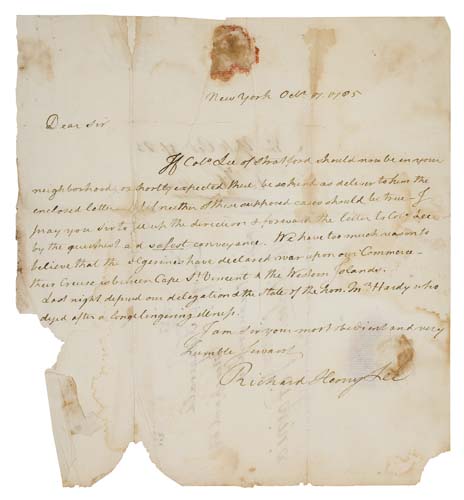 New York Octr. 17. 1785
Dear Sir
If Colo. Lee of Stratford should now be in your
neighborhood, or shortly expected there, be so kind as deliver to him the
enclosed letter neither of these supposed cases should be true I
pray you Sir to up the direction & forward the letter to Colo. Lee
by the quickest and safest conveyance. We have too much reason to
believe that the Algerines have declared war upon our Commerce
their Cruise is between Cape St. Vincent & the Western Islands.
Last night deprived our delegation & the State of the Hon. Mr. Hardy who
dyed after a long lingering illness.
I am Sir your most obedient and very
humble Servant
Richard Henry Lee